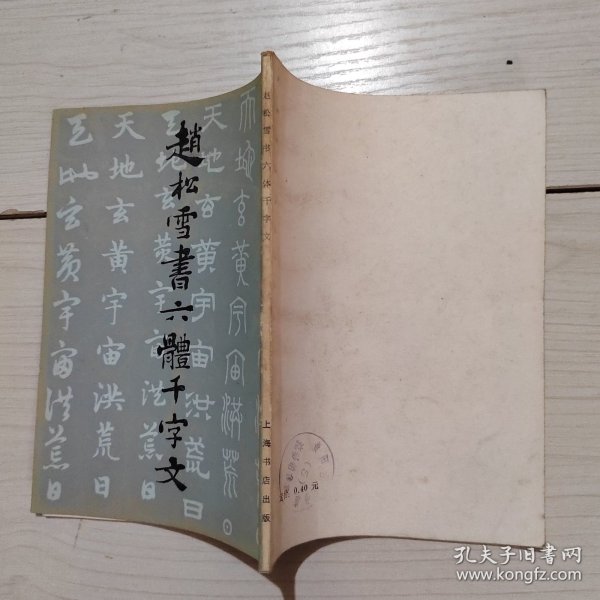 趙松雪書六體千字文
天地玄黃宇宙洪荒日
天地玄黃宇宙洪荒日
天地玄黃宇宙洪荒日
天地玄黃宇宙洪荒日
天地玄黃宇宙洪荒日
赵松雪书六体千字文
上海书店出版
0.40 元
孔夫子旧书网
www.kongfz.com